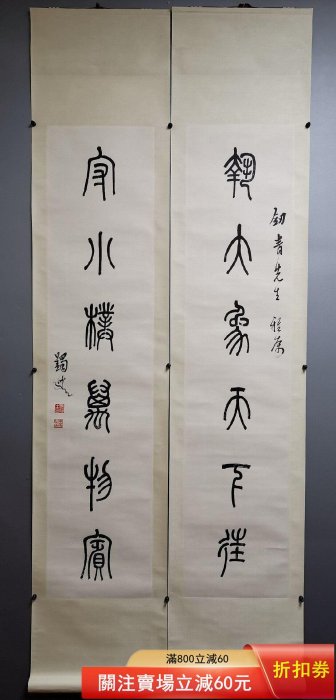 執大象天下往
青先生
守小樸萬物賓
滿800立減60
關注賣場立減60元
折扣券